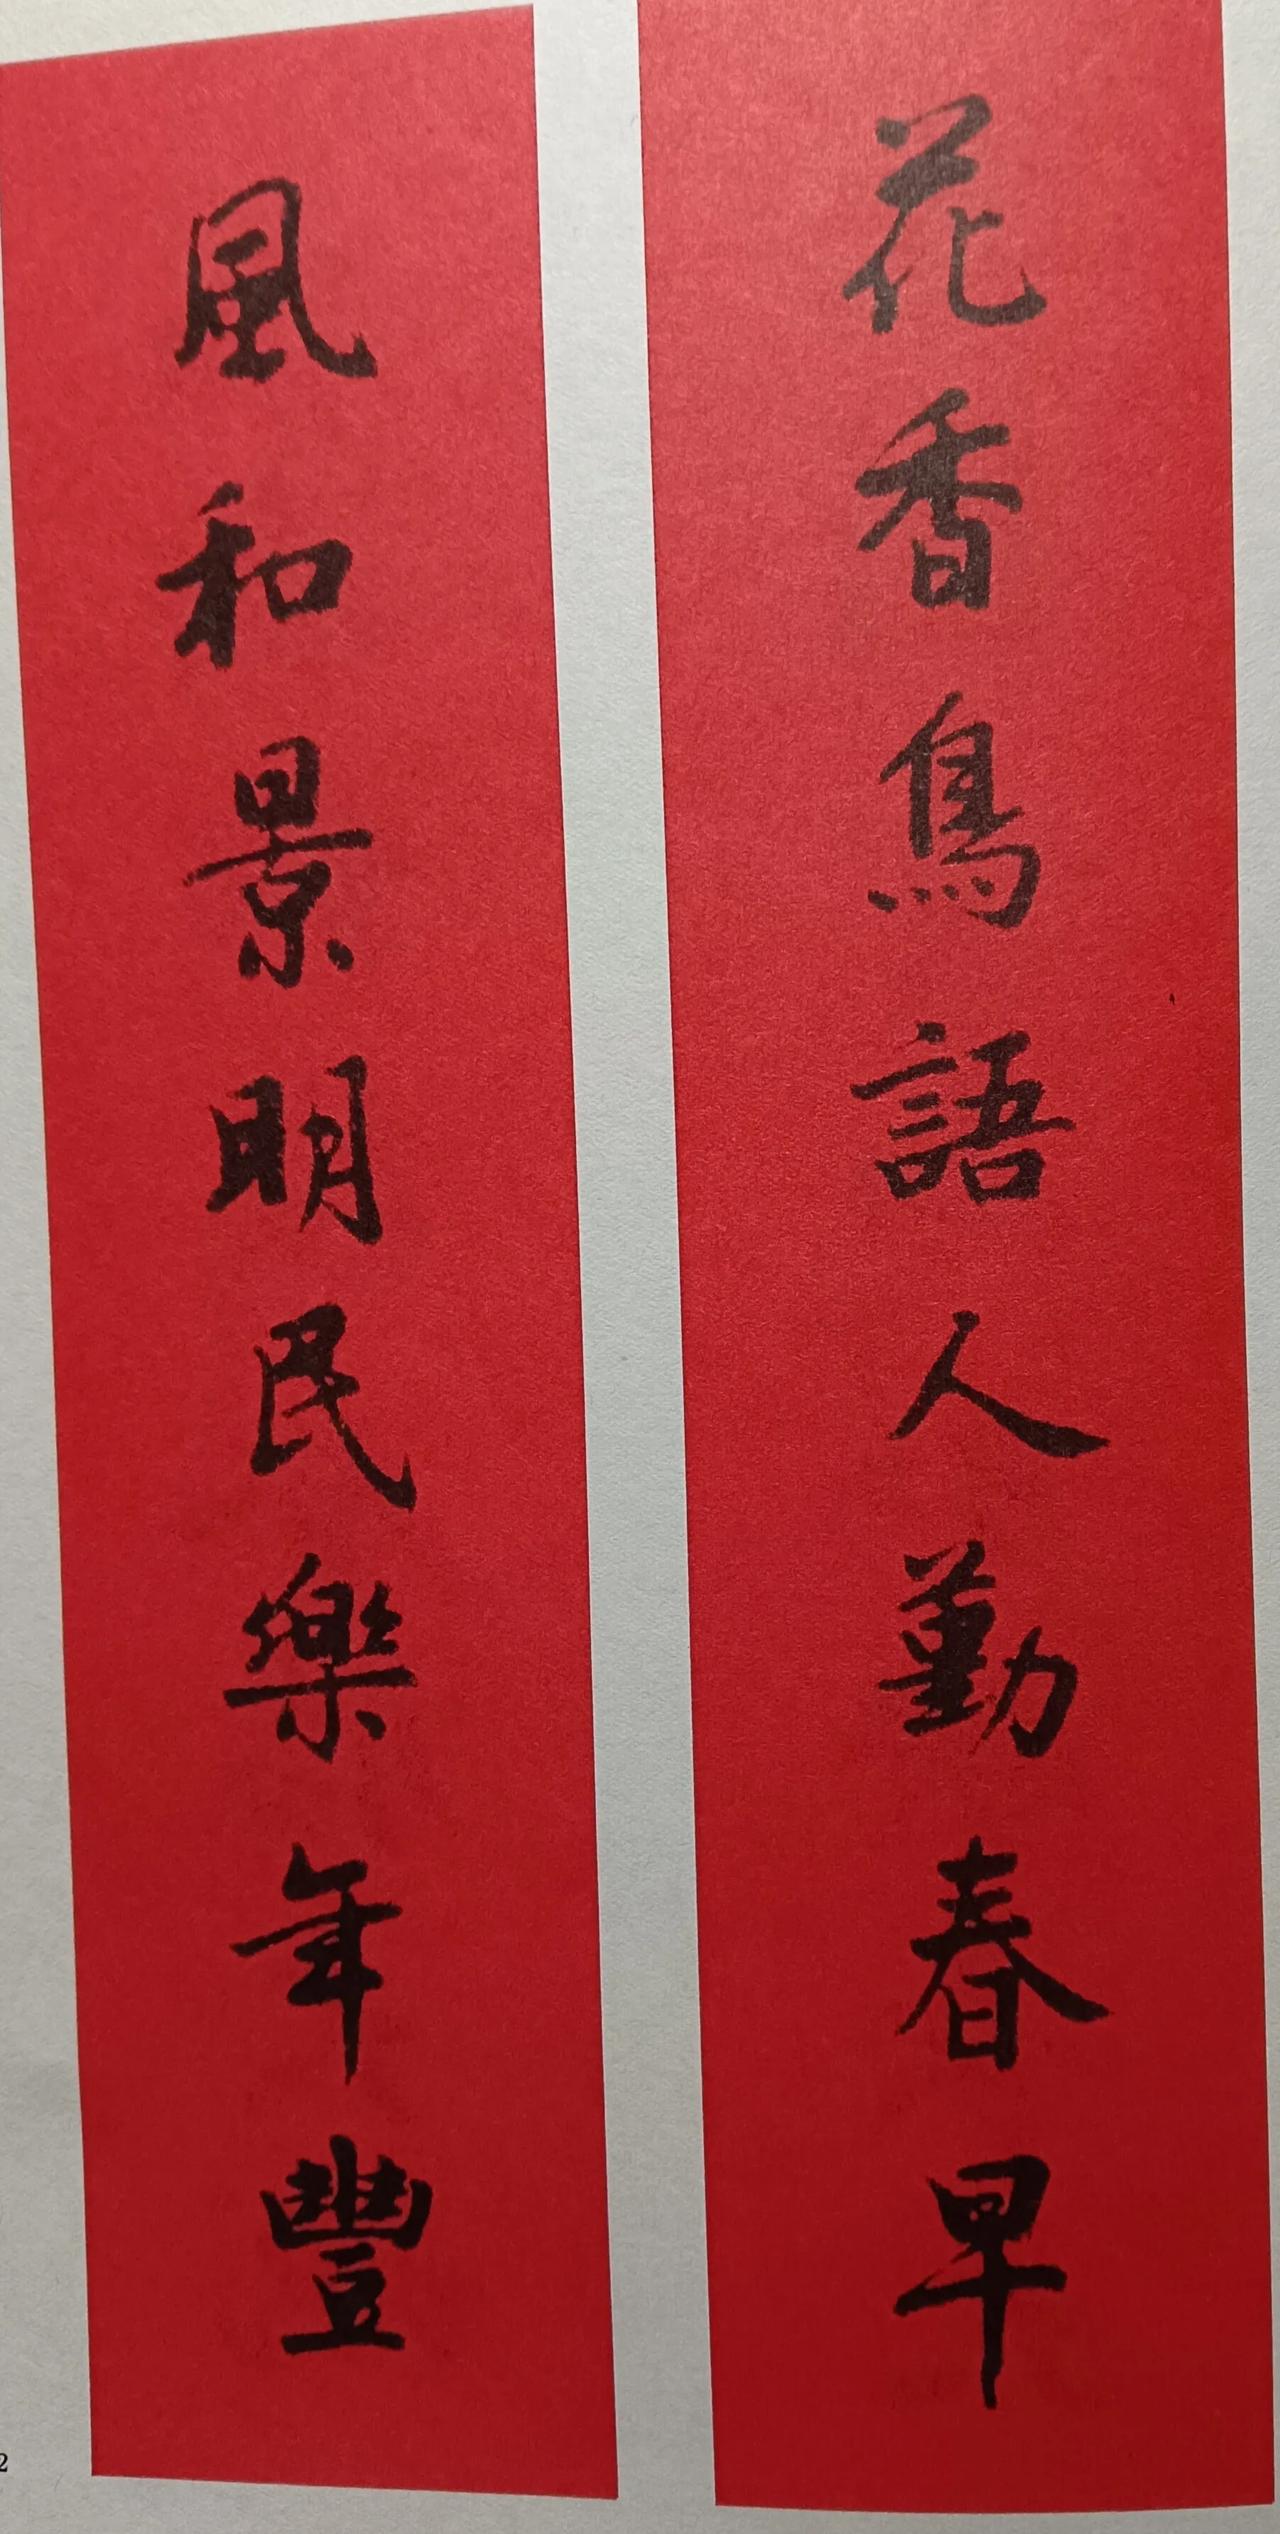 花香鳥語人勤春早
風和景明民樂年豐
2